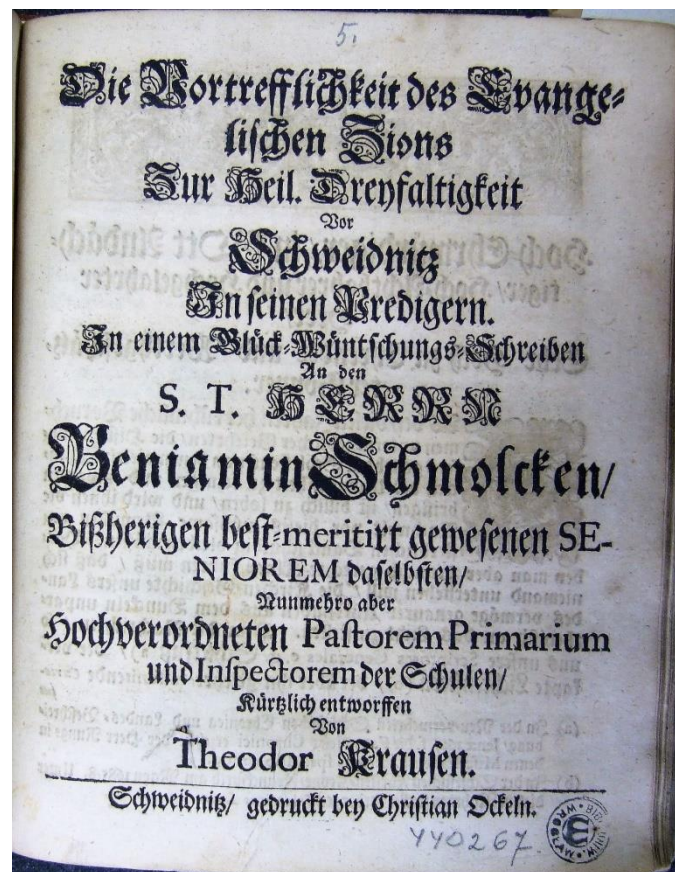 5.
Die Vortrefflichkeit des Evange-
lischen Zions
Zur Heil. Dreyfaltigkeit
Vor
Schweidnitz
In seinen Predigern.
In einem Glück-Wüntschungs-Schreiben
An den
S. T. HERRN
Beniamin Schmolcken/
Bißherigen best-meritirt gewesenen SE-
NIOREM daselbsten/
Nunmehro aber
Hochverordneten Pastorem Primarium
und Inspectorem der Schulen/
Kürtzlich entworffen
Von
Theodor Krausen.
Schweidnitz/ gedruckt bey Christian Ockeln.
440267